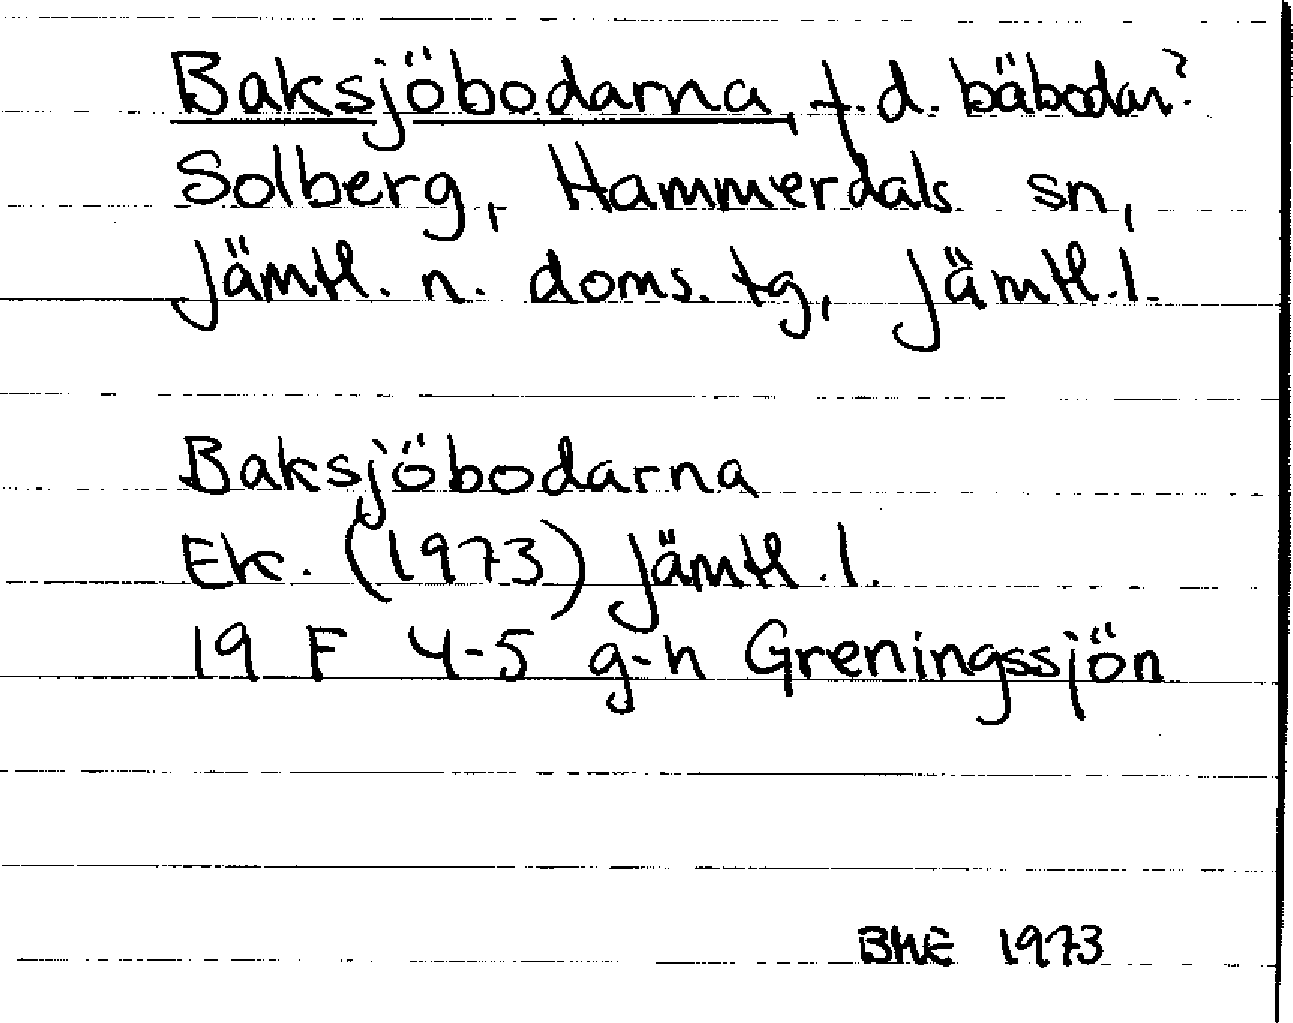 Baksjöbodarna, f.d. bäbodar?
Solberg, Hammerdals sn,
Jämtl. n. doms. tg, Jämtl. l.
Baksjöbodarna
Ek. (1973) Jämtl. l.
19 F 4-5 g-h Greningssjön
BME 1973